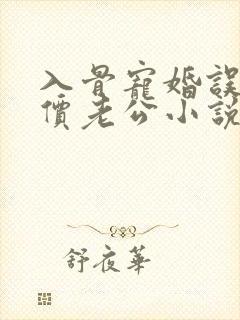 入骨寵婚誤
價老公小説
舒夜華